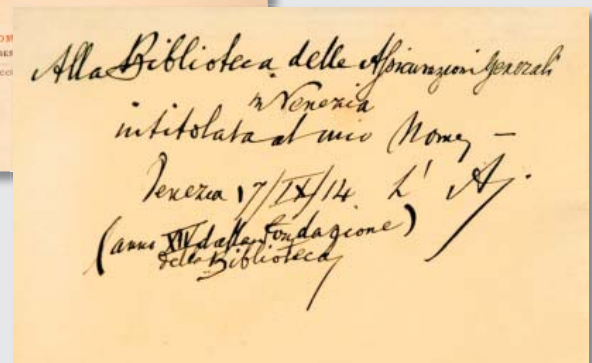 Alla Biblioteca delle Assicurazioni Generali
in Venezia
intitolata al mio Nome, —
Venezia 17/IX/14 L' A.
(anno XIV dalla fondazione)
della Biblioteca